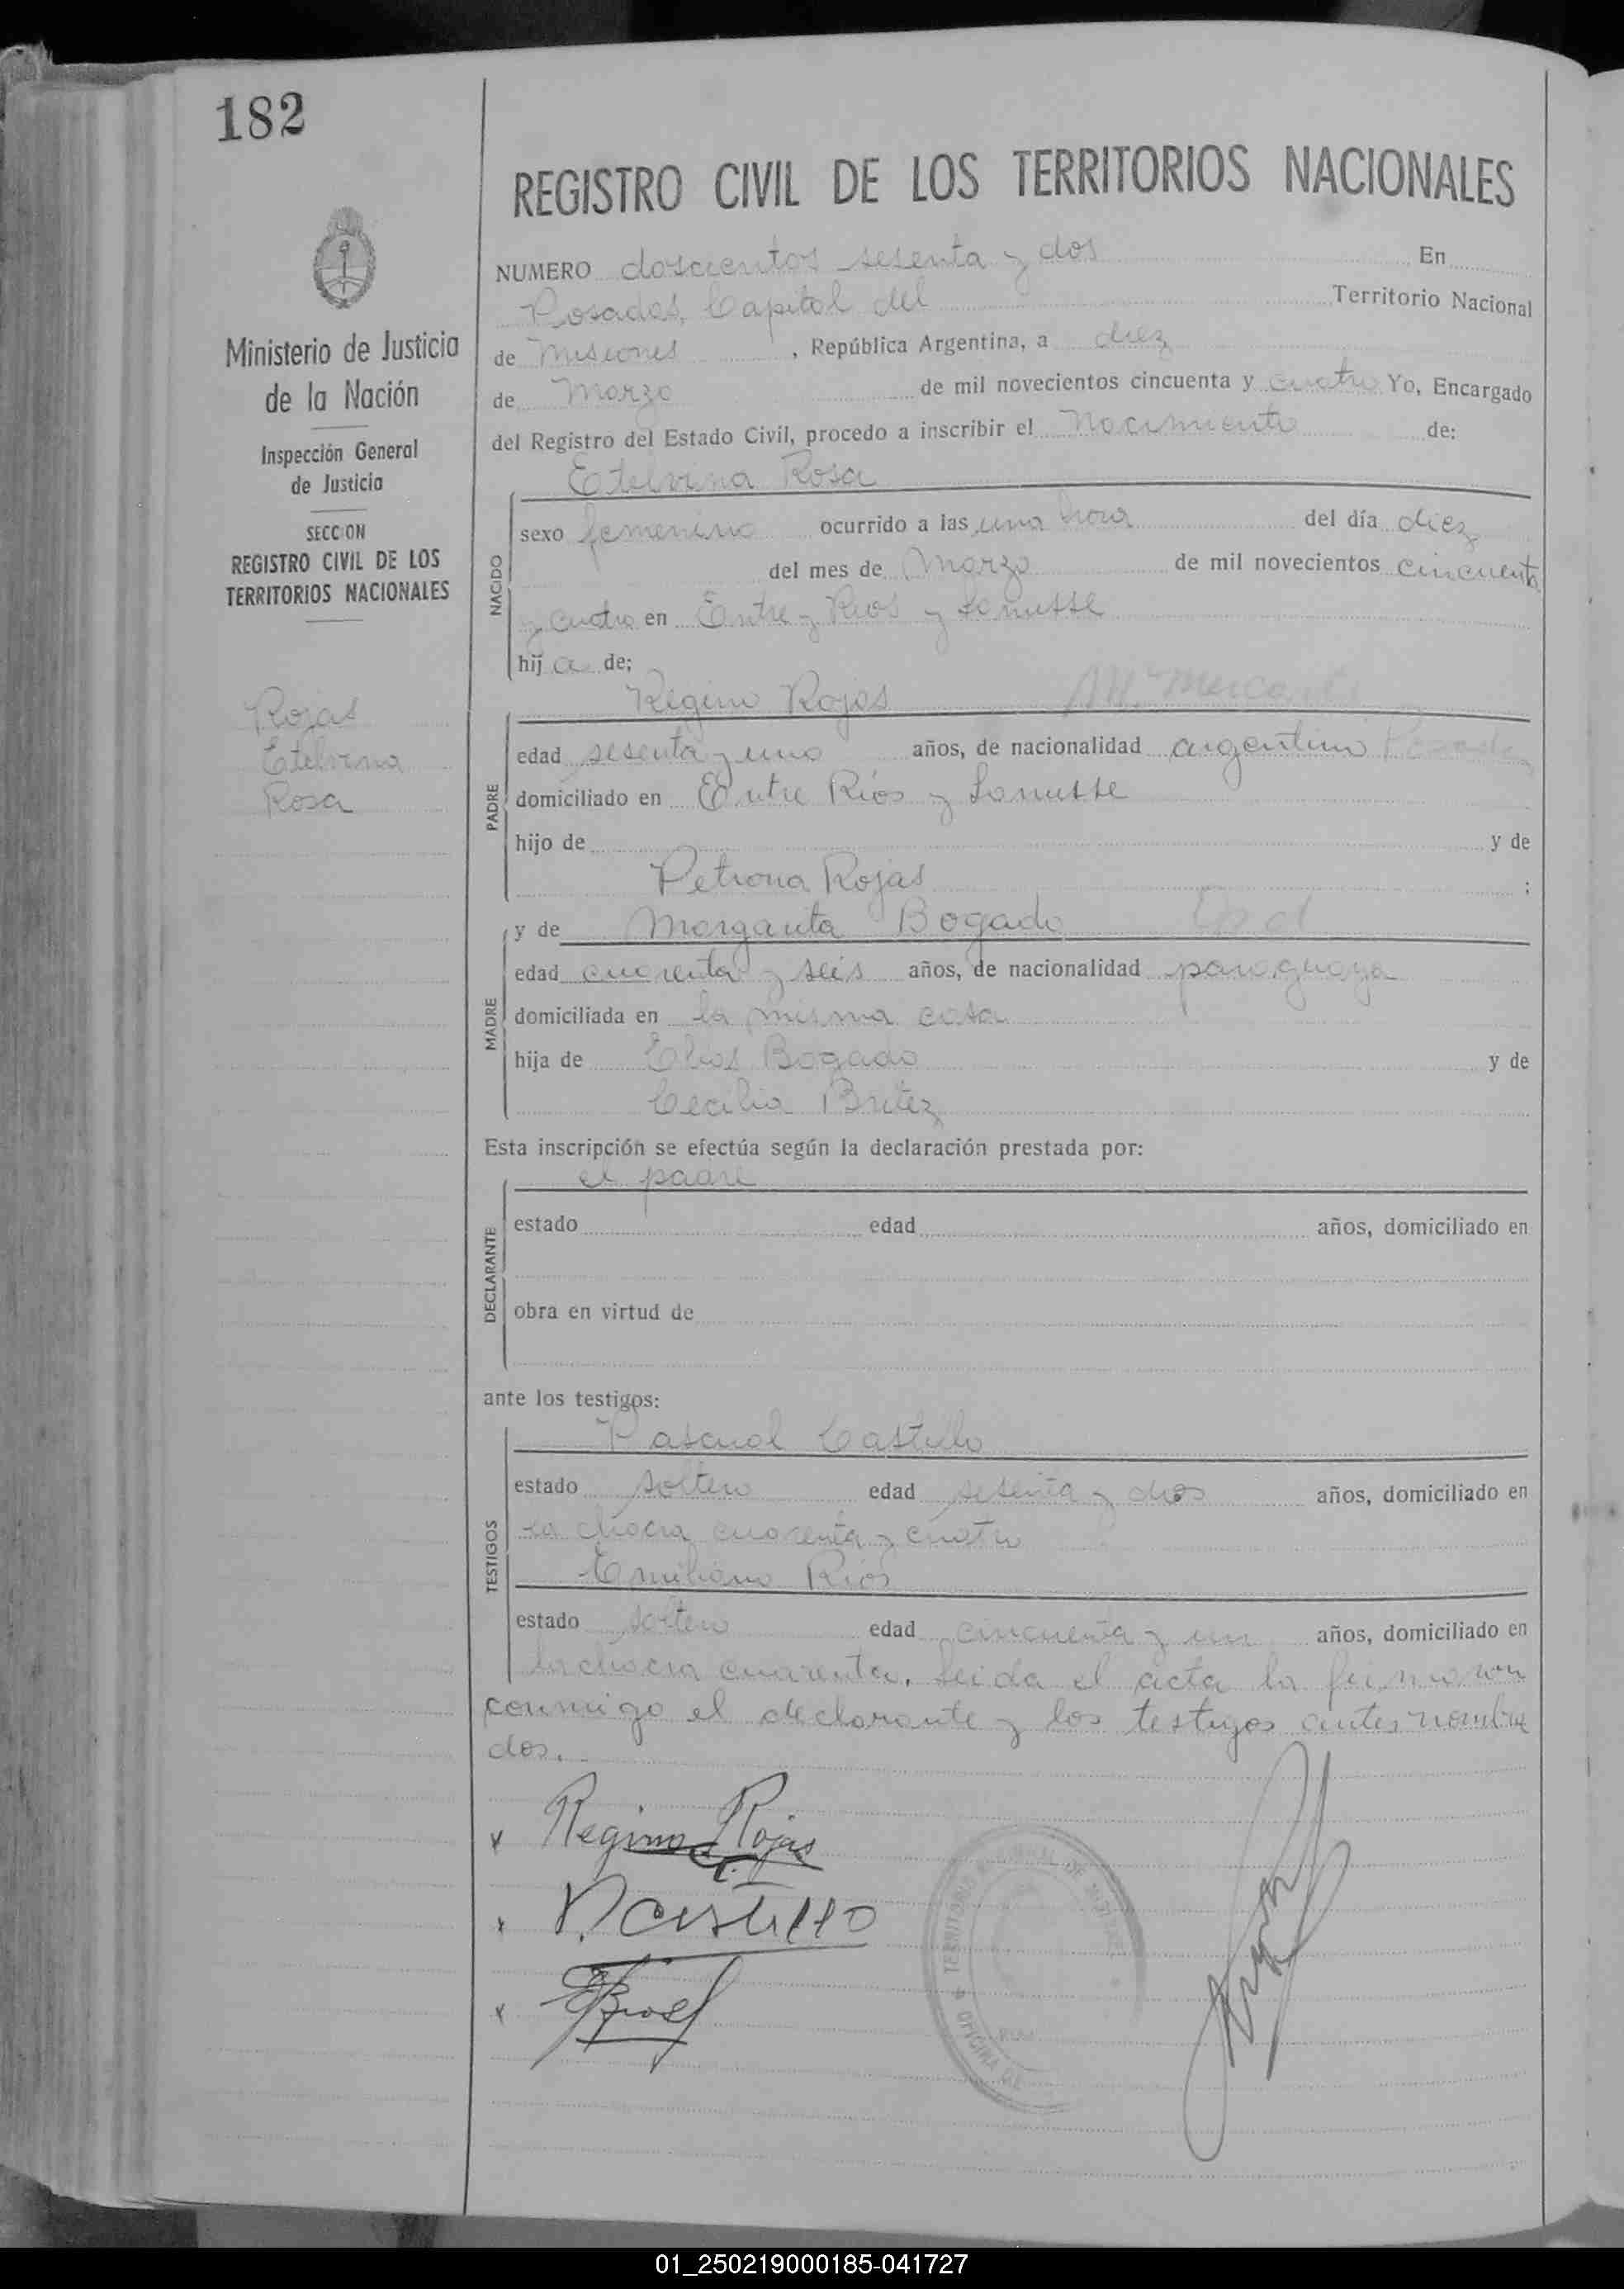 182
REGISTRO CIVIL DE LOS TERRITORIOS NACIONALES
Ministerio de Justicia
de la Nación
Inspección General
de Justicia
SECCION
REGISTRO CIVIL DE LOS
TERRITORIOS NACIONALES
Rojas
Etelvina
Rosa
NUMERO doscientos sesenta y dos En
Posadas, Capital del Territorio Nacional
de Misiones, República Argentina, a diez
de Marzo de mil novecientos cincuenta y cuatro Yo, Encargado
del Registro del Estado Civil, procedo a inscribir el Nacimiento de:
Etelvina Rosa
NACIDO
sexo femenino ocurrido a las una hora del día diez
del mes de Marzo de mil novecientos cincuenta
y cuatro en Entre Rios y Lanusse
hija de;
Regino Rojas
PADRE
edad sesenta y uno años, de nacionalidad argentino
domiciliado en Entre Ríos y Lanusse
hijo de y de
Petrona Rojas ;
y de Margarita Bogado
MADRE
edad cuarenta y seis años, de nacionalidad paraguaya
domiciliada en la misma casa
hija de Elias Bogado y de
Cecilia Britez
Esta inscripción se efectúa según la declaración prestada por:
el padre
DECLARANTE
estado edad años, domiciliado en
obra en virtud de
ante los testigos:
Pascual Castillo
TESTIGOS
estado soltero edad setenta y dos años, domiciliado en
la chacra cuarenta y cuatro
Emiliano Rios
estado soltero edad cincuenta y un años, domiciliado en
la chacra cuarenta. Leida el acta la firmaron
conmigo el declarante y los testigos antes nombra
dos.
Regino Rojas
P. Castillo
ERios
TERRITORIO DE MISIONES
OFICINA DE
01_250219000185-041727